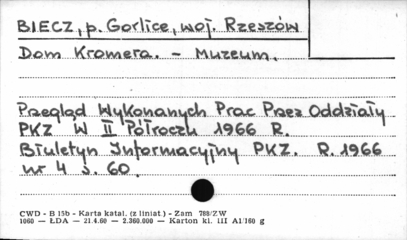 BIECZ, p. Gorlice, woj. Rzeszów
Dom Kromera. - Muzeum.
Przegląd Wykonanych Prac Przez Oddziały
PKZ W II Półroczu 1966 R.
Biuletyn Informacyjny PKZ. R. 1966
nr 4 s. 60.
CWD - B 15b - Karta katal. (z liniat.) - Zam 788/ZW
1060 — ŁDA — 21.4.60 - 2.360.000 — Karton kl. III A1/160 g